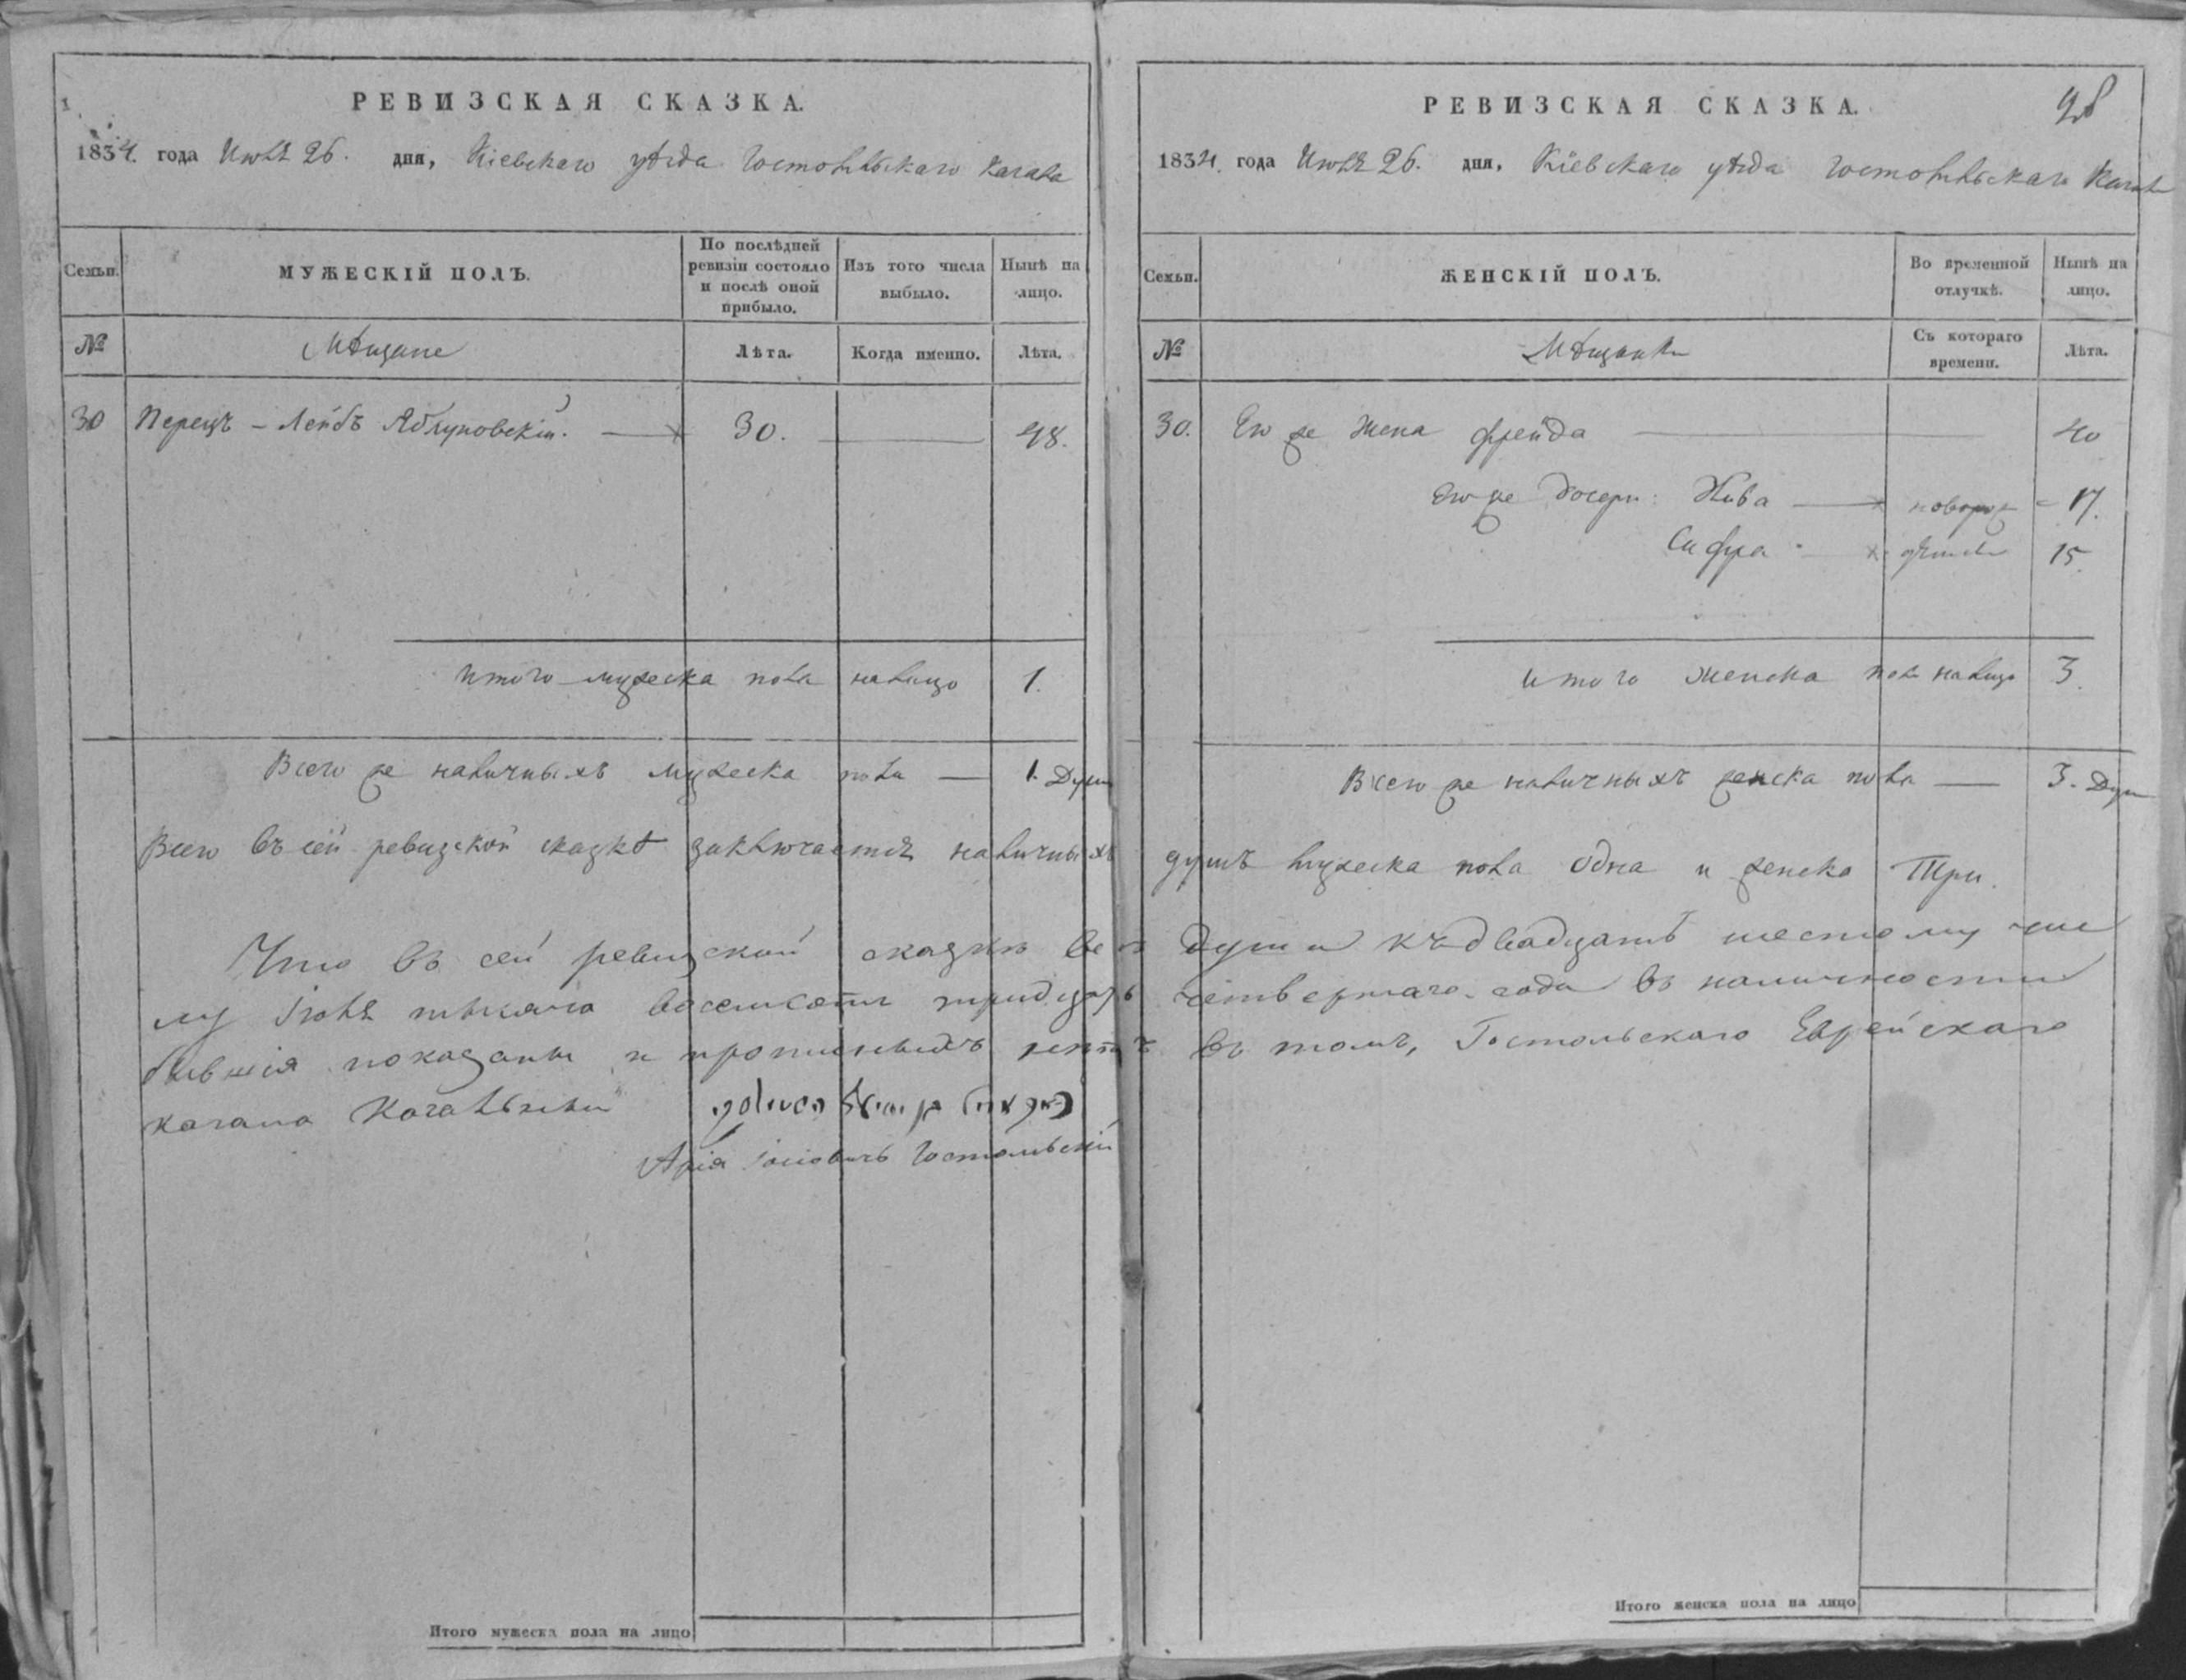 РЕВИЗСКАЯ СКАЗКА.
1834. года Июля 26. дня, Кіевскаго уѣзда Гостомльскаго Кагала
Семьи.
МУЖЕСКІЙ ПОЛЪ.
По послѣдней ревизіи состояло и послѣ оной прибыло.
Изъ того числа выбыло.
Нынѣ на лицо.
№
Мѣщане
Лѣта.
Когда именно.
Лѣта.
30 Перецъ - Лейбъ Яблуновскій. 30. 48.
итого мужеска пола налицо 1.
Всего же наличныхъ мужеска пола — 1. Душа
Итого мужеска пола на лицо
РЕВИЗСКАЯ СКАЗКА.
1834. года Июля 26. дня, Кіевскаго уѣзда Гостомльскаго Кагала
Семьи.
ЖЕНСКІЙ ПОЛЪ.
Во временной отлучкѣ.
Нынѣ на лицо.
№
Мѣщанки
Съ котораго времени.
Лѣта.
30. Его же жена Фрейда 40
Его же дочери: Хива 17.
Сифра 15.
итого женска пола налицо 3.
Всего же наличныхъ женска пола — 3. Души
Всего въ сей ревизской сказкѣ заключается наличныхъ душъ мужеска пола одна и женска Три.
Что въ сей ревизской сказкѣ все души къ двадцать шестому чис
лу Іюля тысяча восемсотъ тридцать четвертаго года въ наличности
бывшія показаны и прописныхъ нетъ въ томъ, Гостомльскаго Еврейскаго
кагала Кагальный
Арія Іосіовичъ Гостомльскій
Итого женска пола на лицо